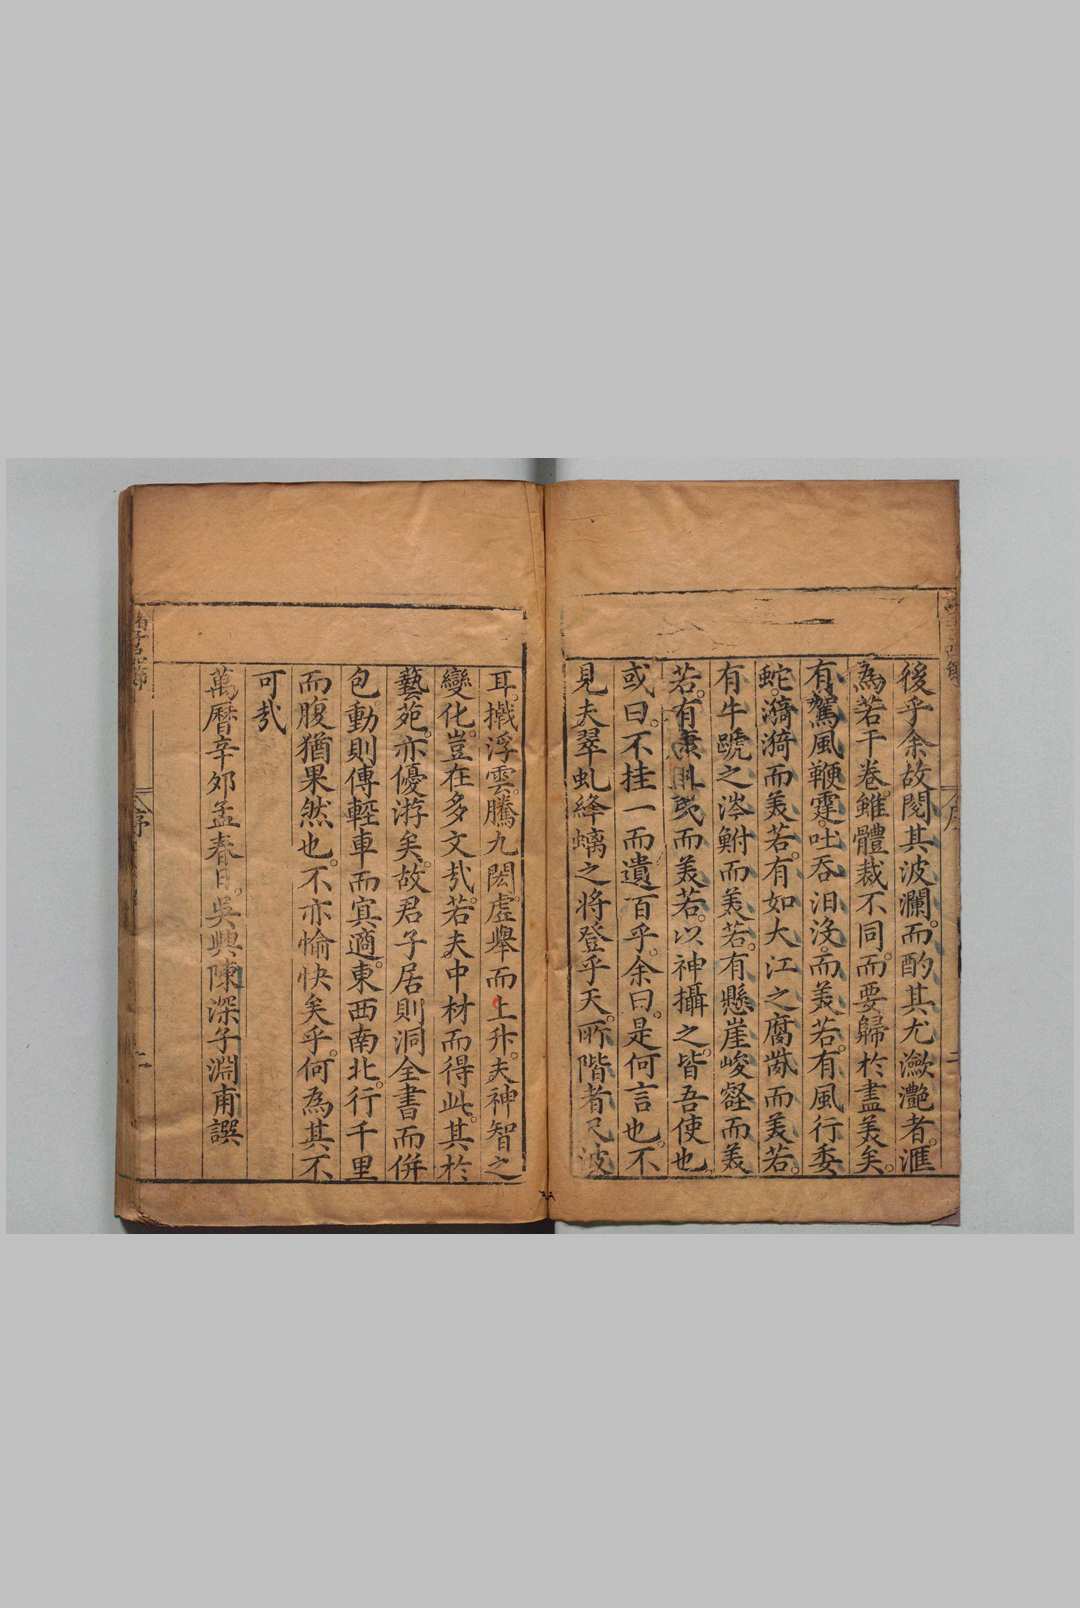 後乎余故閱其波瀾而酌其尤瀲灔者滙
為若干卷雖體裁不同而要歸於盡美矣
有駕風鞭霆吐吞汨没而美若有風行委
蛇漪漪而美若有如大江之腐胔而美若
有牛蹏之涔鮒而美若有懸崖峻壑而美
若有而美若以神攝之皆吾使也
或曰不挂一而遺百乎余曰是何言也不
見夫翠虬絳螭之将登乎天所階者尺波
耳擮浮雲騰九閎虛舉而上升夫神智之
變化豈在多文㦲若夫中材而得此其於
藝苑亦優游矣故君子居則洞全書而併
包動則傅輕車而寘適東西南北行千里
而腹猶果然也不亦愉快矣乎何為其不
可㦲
萬曆辛卯孟春日吳興陳深子淵甫譔
序
二